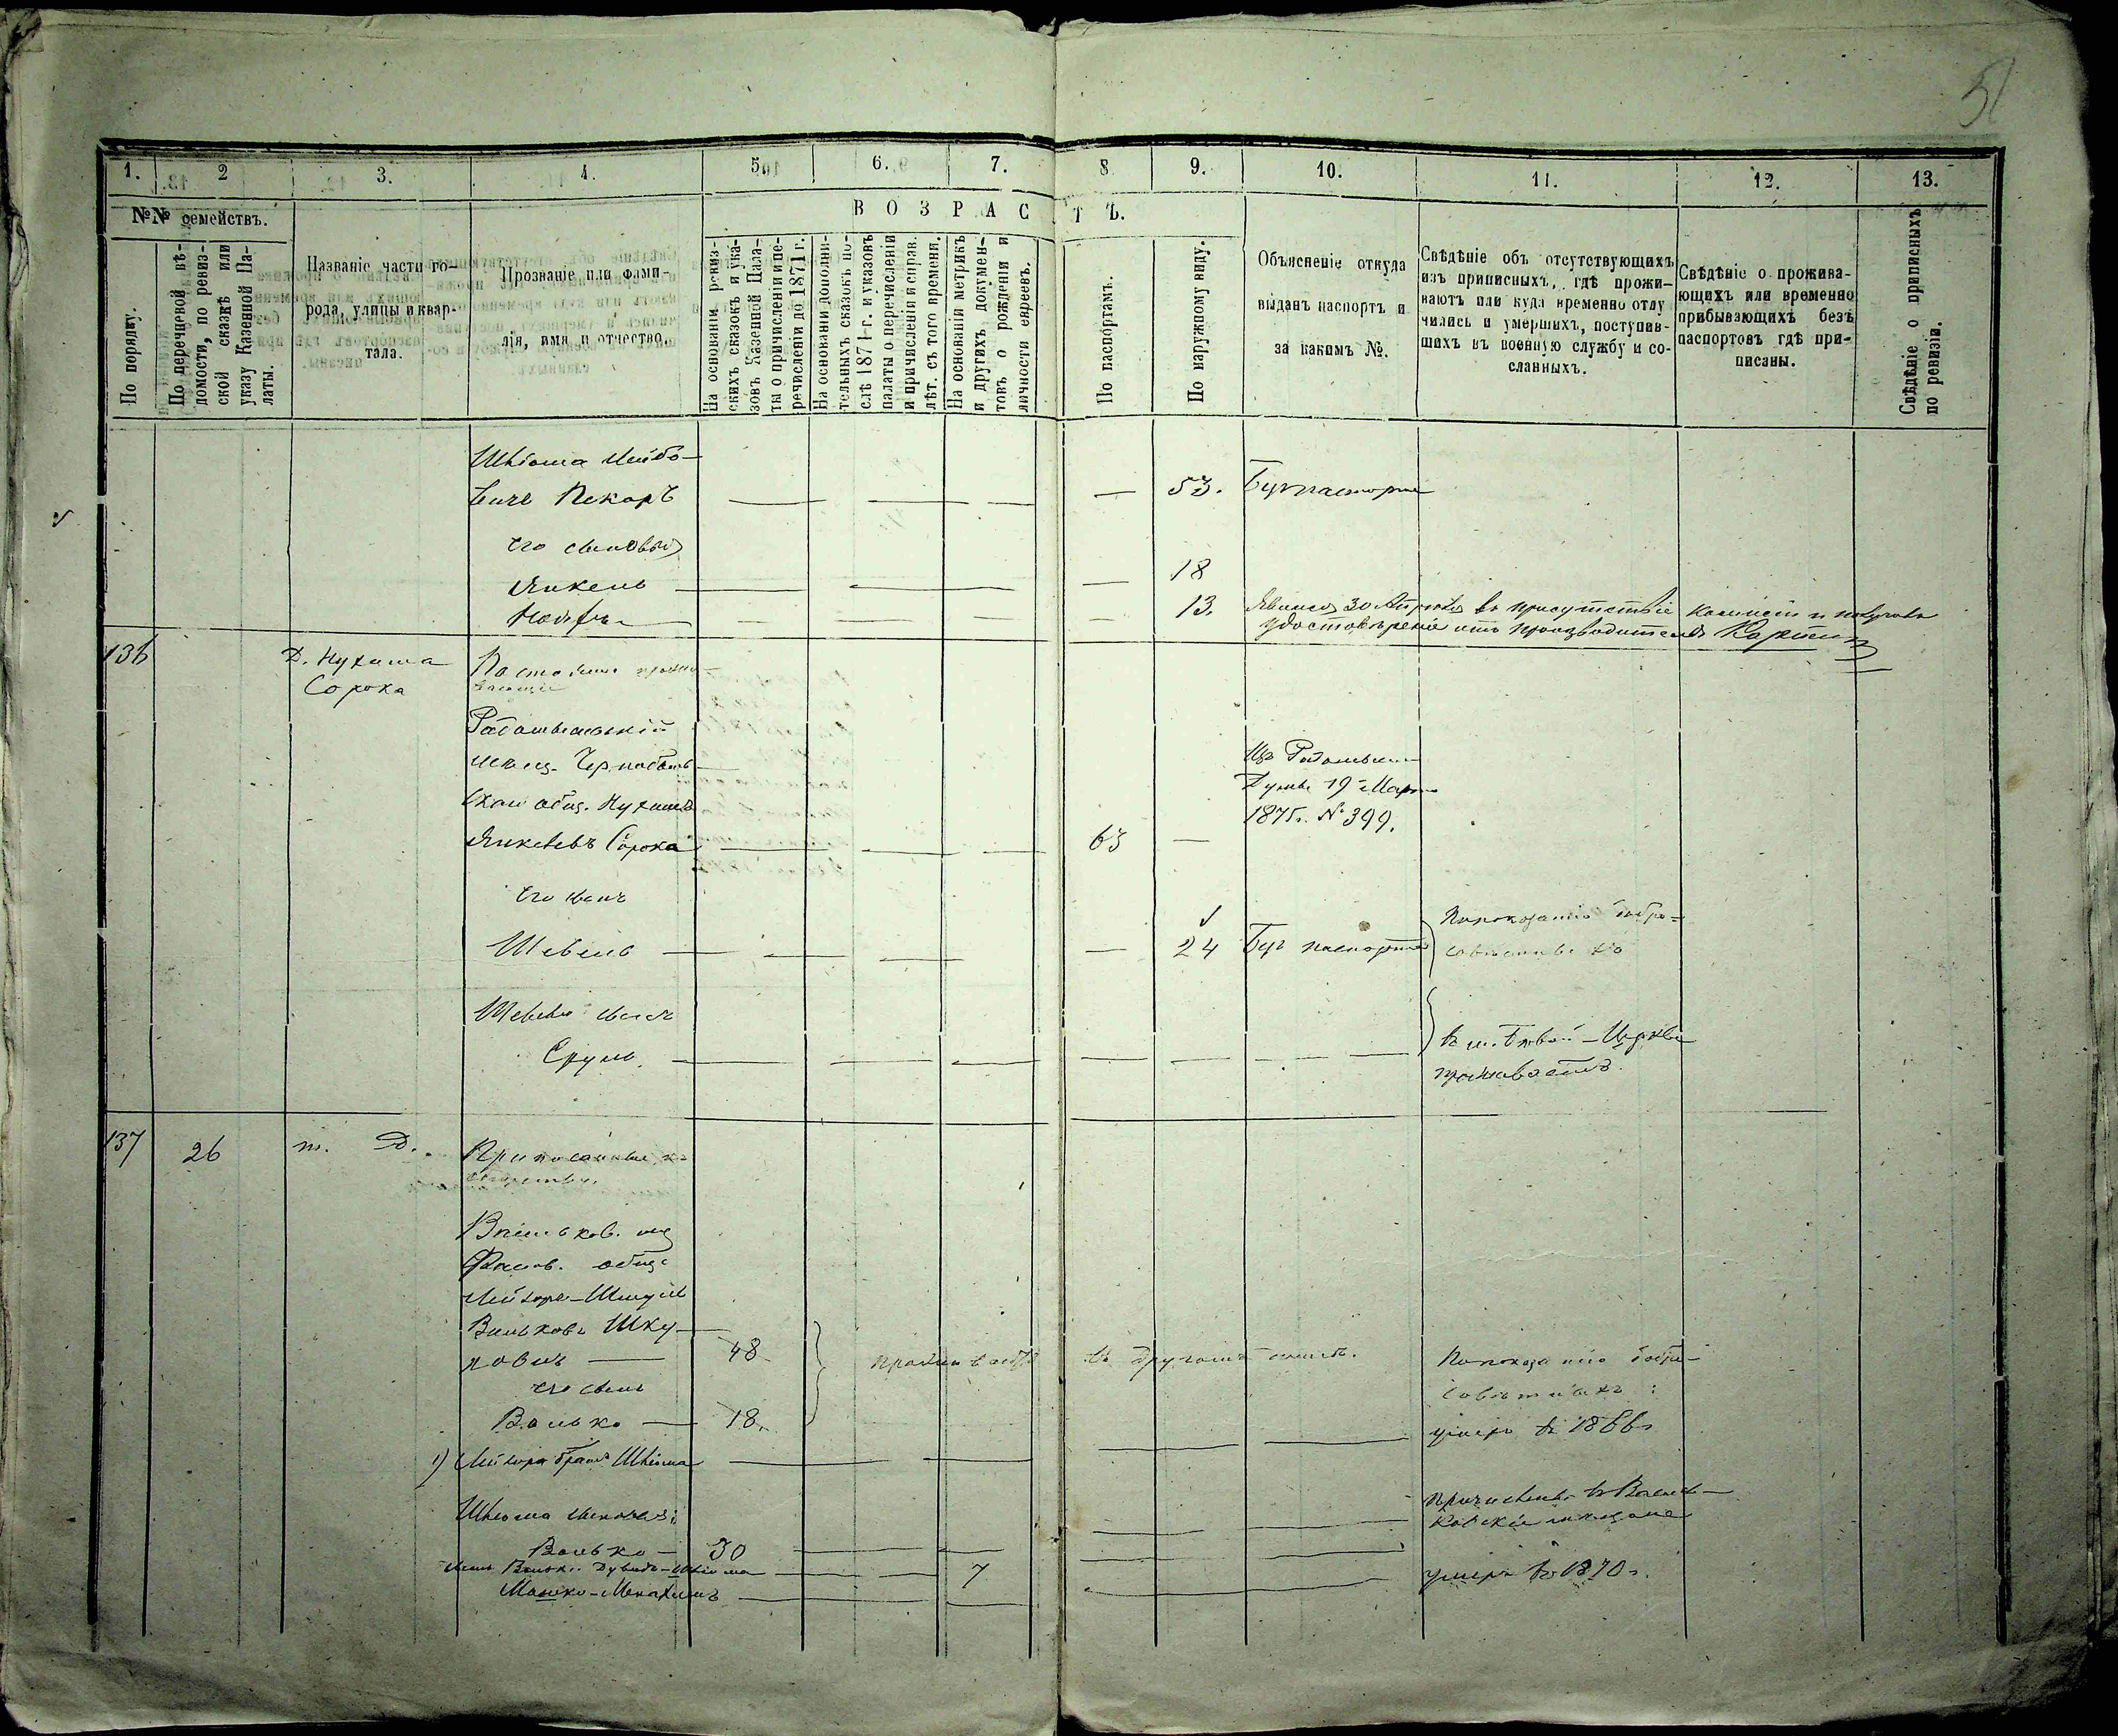 51
1. 2 3. 4. 5. 6. 7. 8 9. 10. 11. 12. 13.
№№ семействъ.
В О З Р А С Т Ъ.
По порядку.
По перечневой вѣ-
домости, по ревиз-
ской сказкѣ или
указу Казенной Па-
латы.
Названіе части го-
рода, улицы и квар-
тала.
Прозваніе или фами-
лія, имя и отчество.
На основаніи ревиз-
скихъ сказокъ и ука-
зовъ Казенной Пала-
ты о причисленіи и пе-
речисленіи до 1871 г.
На основаніи дополни-
тельныхъ сказокъ по-
слѣ 1871 г. и указовъ
палаты о перечисленіи
и причисленіи и справ.
лѣт. съ того времени.
На основаніи метрикъ
и другихъ докумен-
товъ о рожденіи и
личности евреевъ.
По паспортамъ.
По наружному виду.
Объясненіе откуда
выданъ паспортъ и
за какимъ №.
Свѣдѣніе объ отсутствующихъ
изъ приписныхъ, гдѣ прожи-
ваютъ или куда временно отлу
чились и умершихъ, поступив-
шихъ въ военную службу и со-
сланныхъ.
Свѣдѣніе о прожива-
ющихъ или временно
прибывающихъ безъ
паспортовъ гдѣ при-
писаны.
Свѣдѣніе о приписныхъ
по ревизіи.
Шлiома Лейбо-
вичъ Пекарь — — — — 53. Безъ паспорта
его сыновья
Янкель — — — — 18
— — — — 13. Явился 30 Апрѣля въ присутствіе
удостовѣреніе отъ производителя
136 Д. Нухима
Сорока
Постоянно прожи-
вающіе
Радомысльскій
мѣщ. Чернобыль-
ской общ. Нухимъ
Янкелевъ Сорока — — — 63 —
Изъ Радомысльск
Думы 19 Марта
1875г. № 399.
его сынъ
Шевель — — — — 24 Безъ паспорта
По показанію добро-
совѣстныхъ
Шевеля сынъ
Сруль — — — — — —
въ м. Бѣлой-Церкви
проживаетъ
137 26 т. Д.
Приписанные къ
обществу.
Васильков. мѣщ
Фастов. общ.
Лейзоръ-Шмуль
Вольковъ Шку-
ровичъ — 48. проживаетъ въ другомъ
его сынъ
Волько — 18.
По показанію добро-
совѣстныхъ:
умеръ въ 1866г
1) Лейзора братъ Шліома — — — —
Шліома сыновья:
Волько — 30 — — — —
Причисленъ въ Василь-
ковскіе мѣщане
сынъ Волька Дувидъ-Шліома — — 7 — —
Мошко-Менахимъ — — — умеръ въ 1870г.